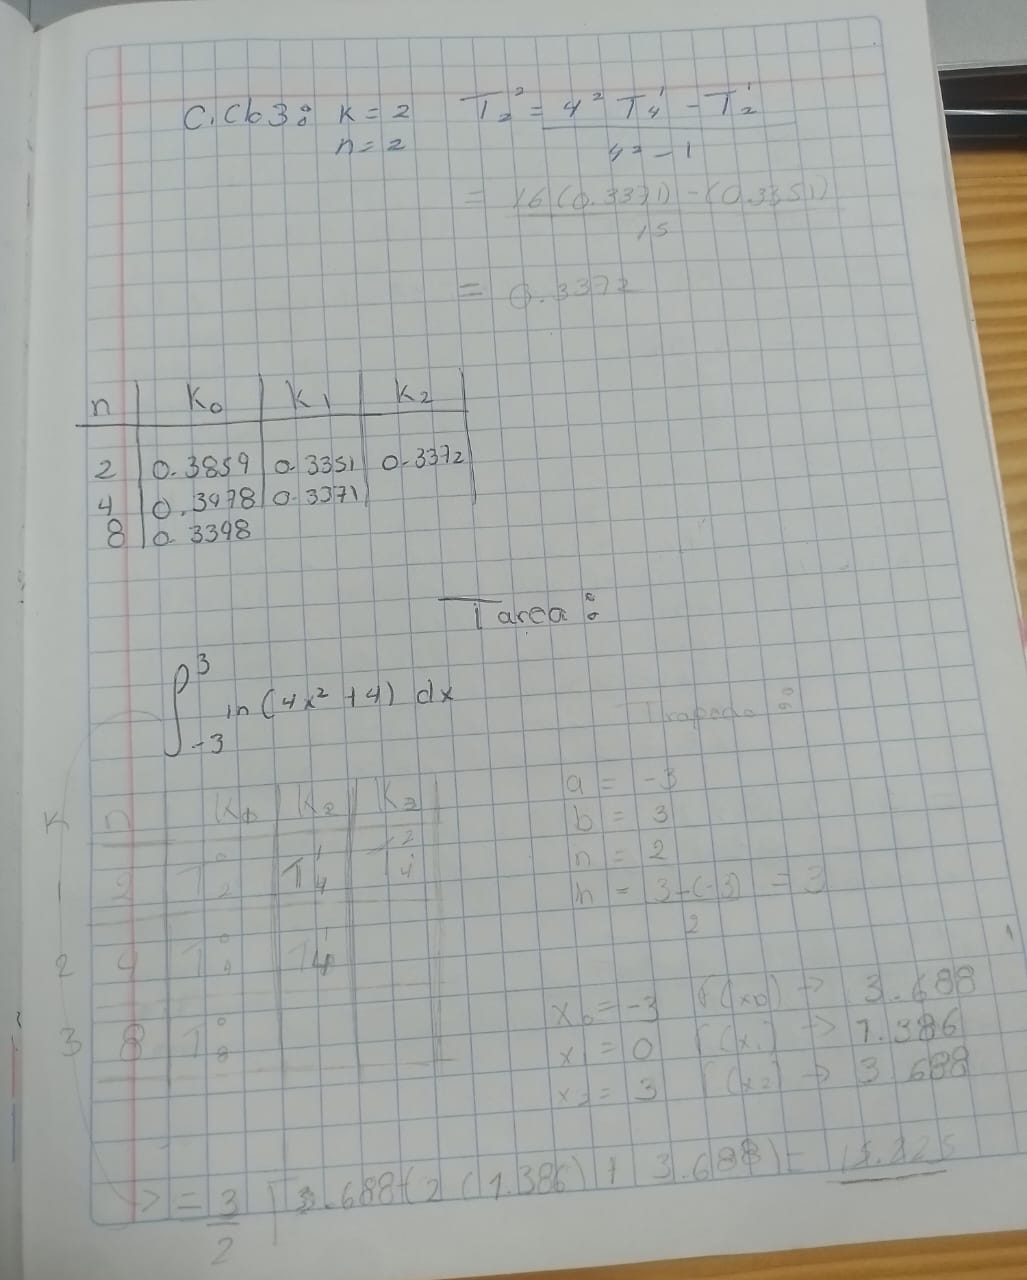 C.Cb3: k = 2 T₂² = 4² T₄¹ - T₂¹
n = 2 4² - 1
= 16 (0.3371) - (0.3351)
15
= 0.3372
n K₀ K₁ K₂
2 0.3859 0.3351 0.3372
4 0.3478 0.3371
8 0.3398
Tarea:
∫₋₃³ ln (4x² + 4) dx
Trapecio:
a = -3
b = 3
n = 2
h = 3-(-3) = 3
2
K n K₁ K₂ K₃
1 2 T₂⁰ T₄¹ T₄²
2 4 T₄⁰ T₄¹
3 8 T₈⁰
x₀ = -3 f(x₀) → 3.688
x₁ = 0 f(x₁) → 1.386
x₂ = 3 f(x₂) → 3.688
= 3 [3.688+2 (1.386) + 3.688] = 15.225
2